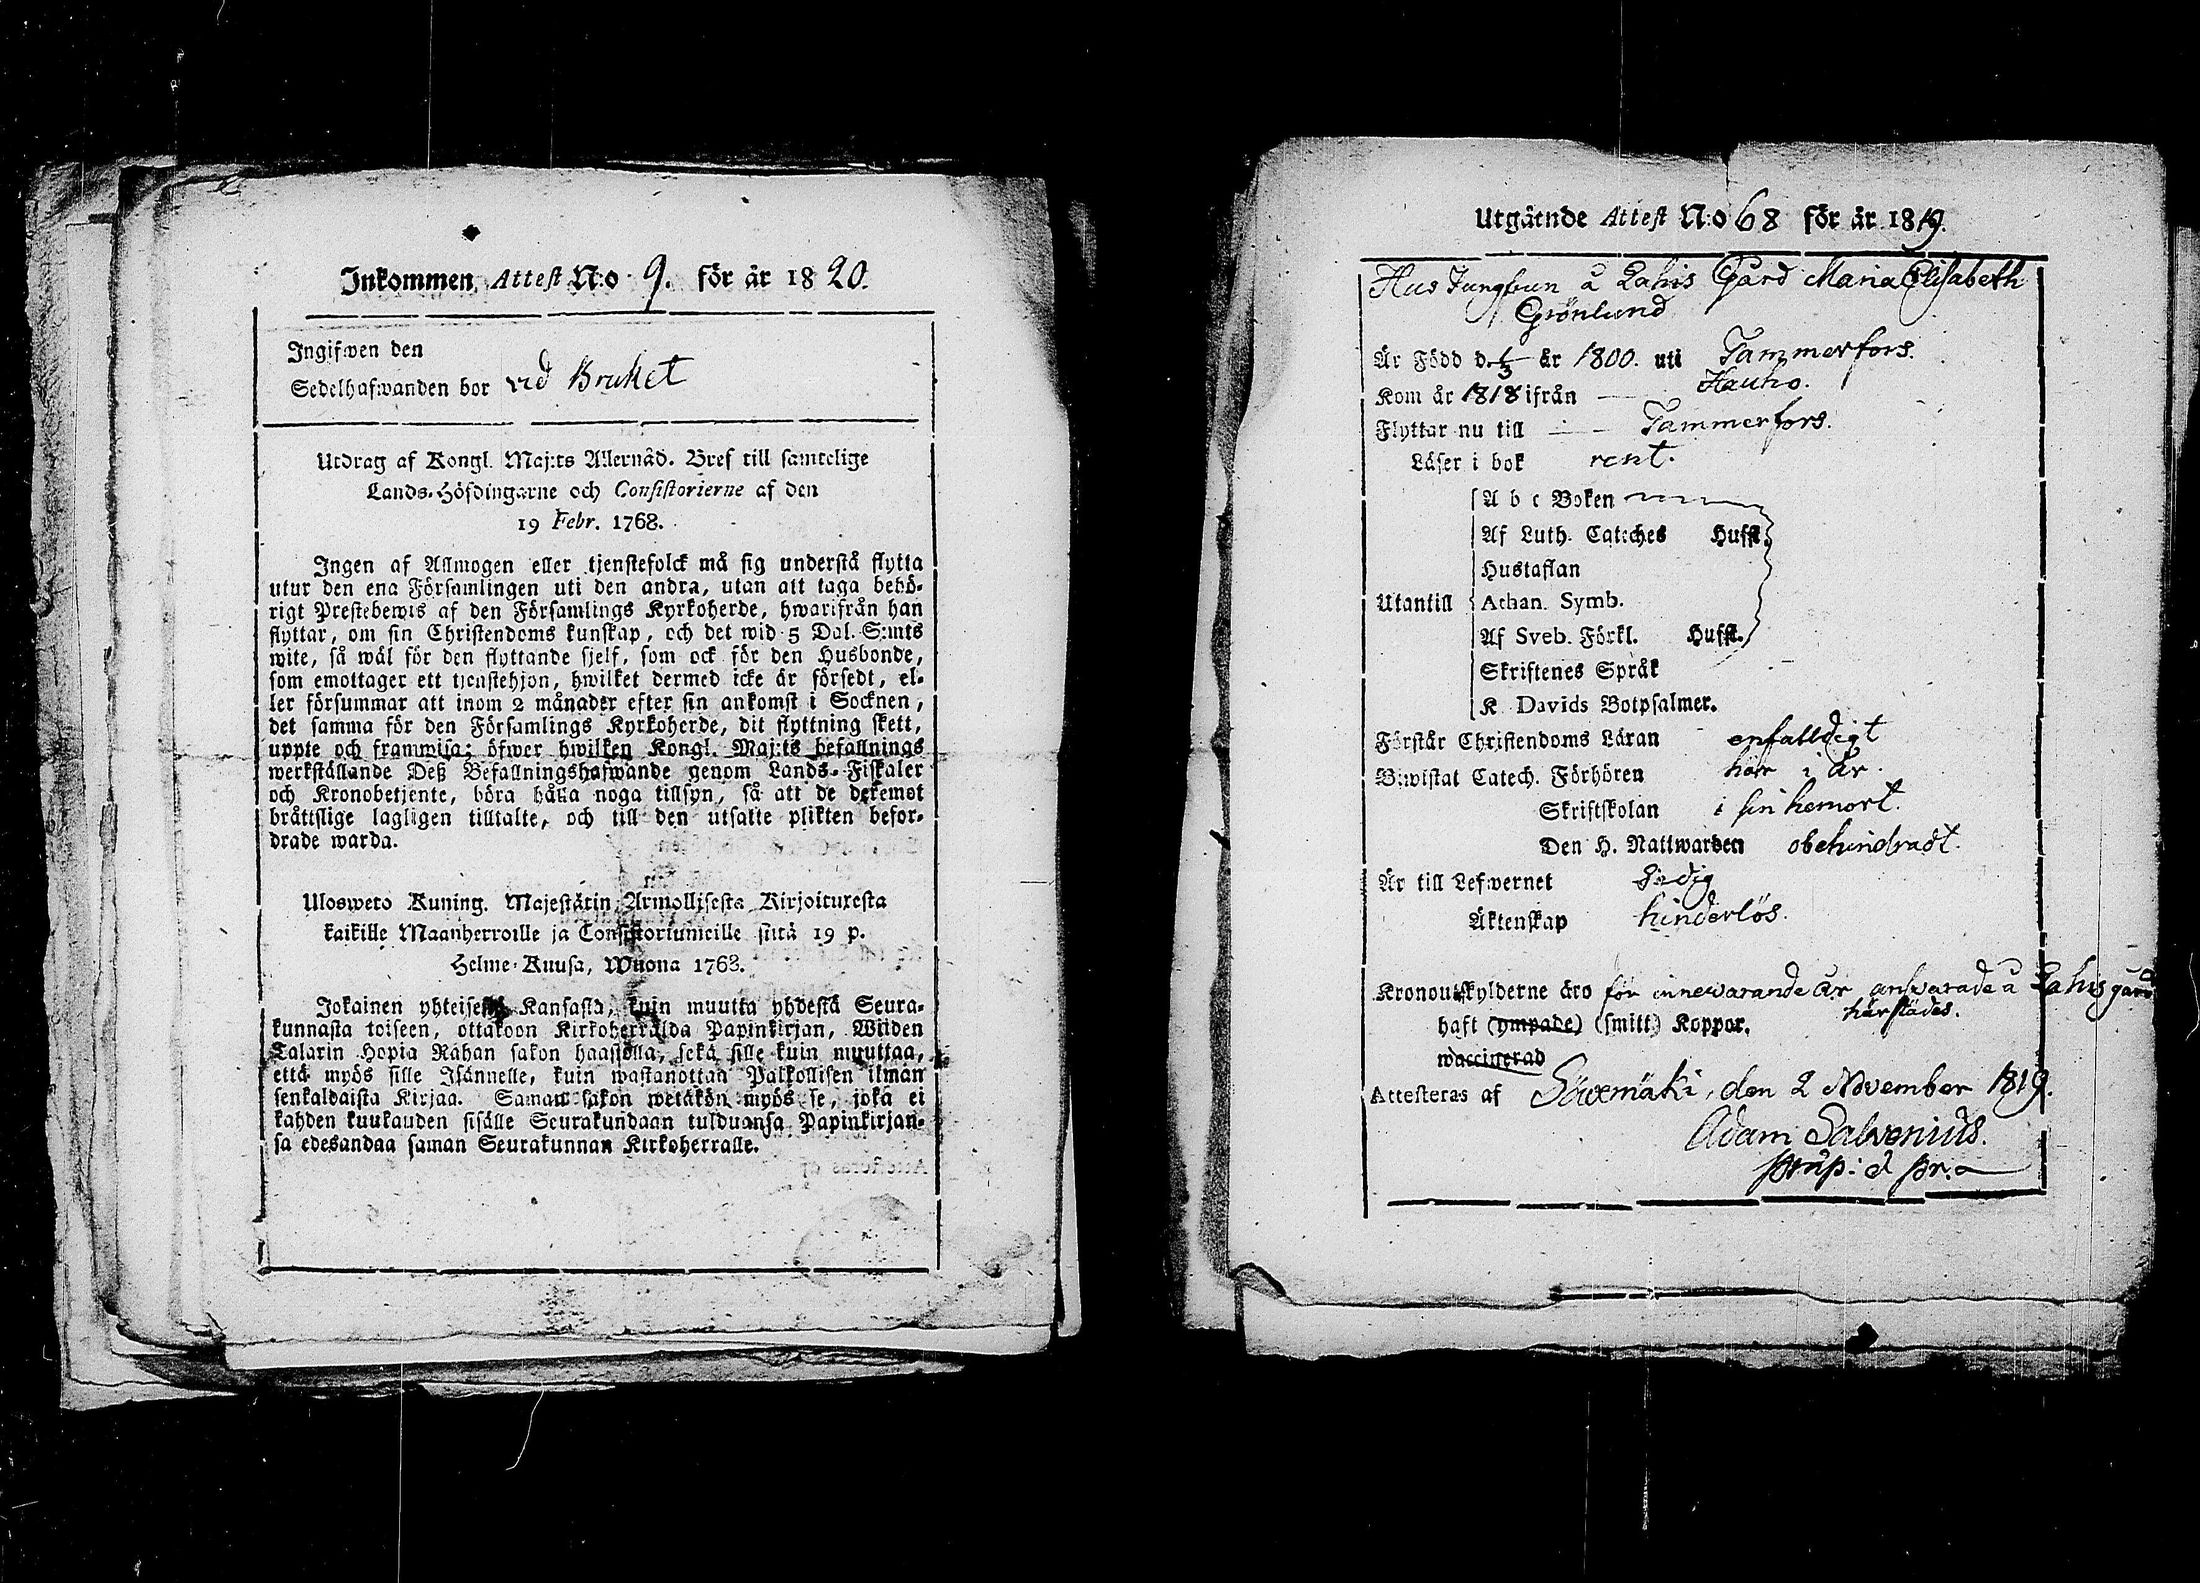 Inkommen Attest N:o 9. för år 1820.
Ingifwen den
Sedelhafwanden bor vid Bruket
Utdrag af Kongl. Maj:ts Allernåd. Bref till samtelige
Lands-Höfdingarne och Consistorierne af den
19 Febr. 1768.
Ingen af Allmogen eller tjenstefolck må sig understå flytta
utur den ena Församlingen uti den andra, utan att taga behö-
rigt Prestebewis af den Församlings Kyrkoherde, hwarifrån han
flyttar, om sin Christendoms kunskap, och det wid 5 Dal. S:mts
wite, så wäl för den flyttande sjelf, som ock för den Husbonde,
som emottager ett tjenstehjon, hwilket dermed icke är försedt, el-
ler försummar att inom 2 månader efter sin ankomst i Socknen,
det samma för den Församlings Kyrkoherde, dit flyttning skett,
uppte och framwisa; öfwer hwilken Kongl. Maj:ts befallnings
werkställande Deß Befallningshafwande genom Lands-Fiskaler
och Kronobetjente, böra hålla noga tillsyn, så att de deremot
bråttslige lagligen tilltalte, och till den utsatte plikten befor-
drade warda.
Ulosweto Kuning. Majestätin Armollisesta Kirjoituxesta
kaikille Maanherroille ja Consistoriumeille siitä 19 p.
Helme-Kuusa, Wuona 1768.
Jokainen yhteisestä Kansasta, kuin muutta yhdestä Seura-
kunnasta toiseen, ottakoon Kirkoherralda Papinkirjan, Wiiden
Talarin Hopia Rahan sakon haastolla, sekä sille kuin muuttaa,
että myös sille Isännelle, kuin wastanottaa Palkollisen ilman
senkaldaista Kirjaa. Saman sakon wetäkön myös se, joka ei
kahden kuukauden sisälle Seurakundaan tulduansa Papinkirjan-
sa edesandaa saman Seurakunnan Kirkoherralle.
Utgående Attest N:o 68 för år 1819.
Hus Jungfrun å Lahis Gård Maria Elisabeth
Grönlund
Är Född d. 1/3 år 1800. uti Tammerfors.
Kom år 1818 ifrån Hauho.
Flyttar nu till Tammerfors.
Läser i bok rent.
A b c Boken
Af Luth. Cateches Husfl.
Hustaflan
Utantill Athan. Symb.
Af Sveb. Förkl. Husfl.
Skriftenes Språk
K. Davids Botpsalmer.
Förstår Christendoms Läran enfalldigt
Biwistat Catech. Förhören här i år.
Skriftskolan i sin hemort.
Den H. Nattwarden obehindradt.
Är till Lefwernet Sedig
Äktenskap hinderlös.
Kronoutskylderne äro för innewarande år answarade å Lahis gård
härstädes.
haft (ympade) (smitt) Koppor.
waccinerad
Attesteras af Säxmäki, den 2 November 1819.
Adam Salvenius.